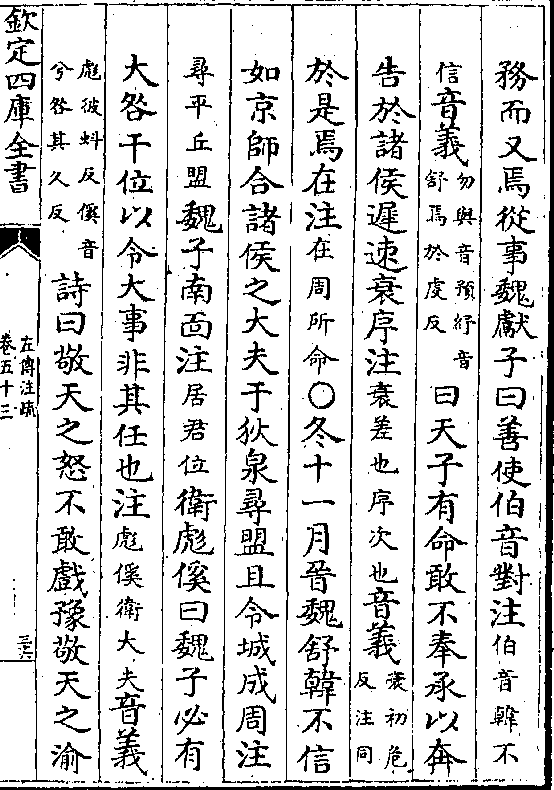 務而又焉從事魏獻子曰善使伯音對注伯音韓不
信音義勿與音預紓音舒焉於虔反曰天子有命敢不奉承以奔
告於諸侯遲速衰序注衰差也序次也音義衰初危反注同
於是焉在注在周所命〇冬十一月晉魏舒韓不信
如京師合諸侯之大夫于狄泉尋盟且令城成周注
尋平丘盟魏子南面注居君位衛彪傒曰魏子必有
大咎干位以令大事非其任也注彪傒衛大夫音義
彪彼蚪反傒音兮咎其久反詩曰敬天之怒不敢戲豫敬天之渝
欽定四庫全書
左傳注疏
卷五十三
三六